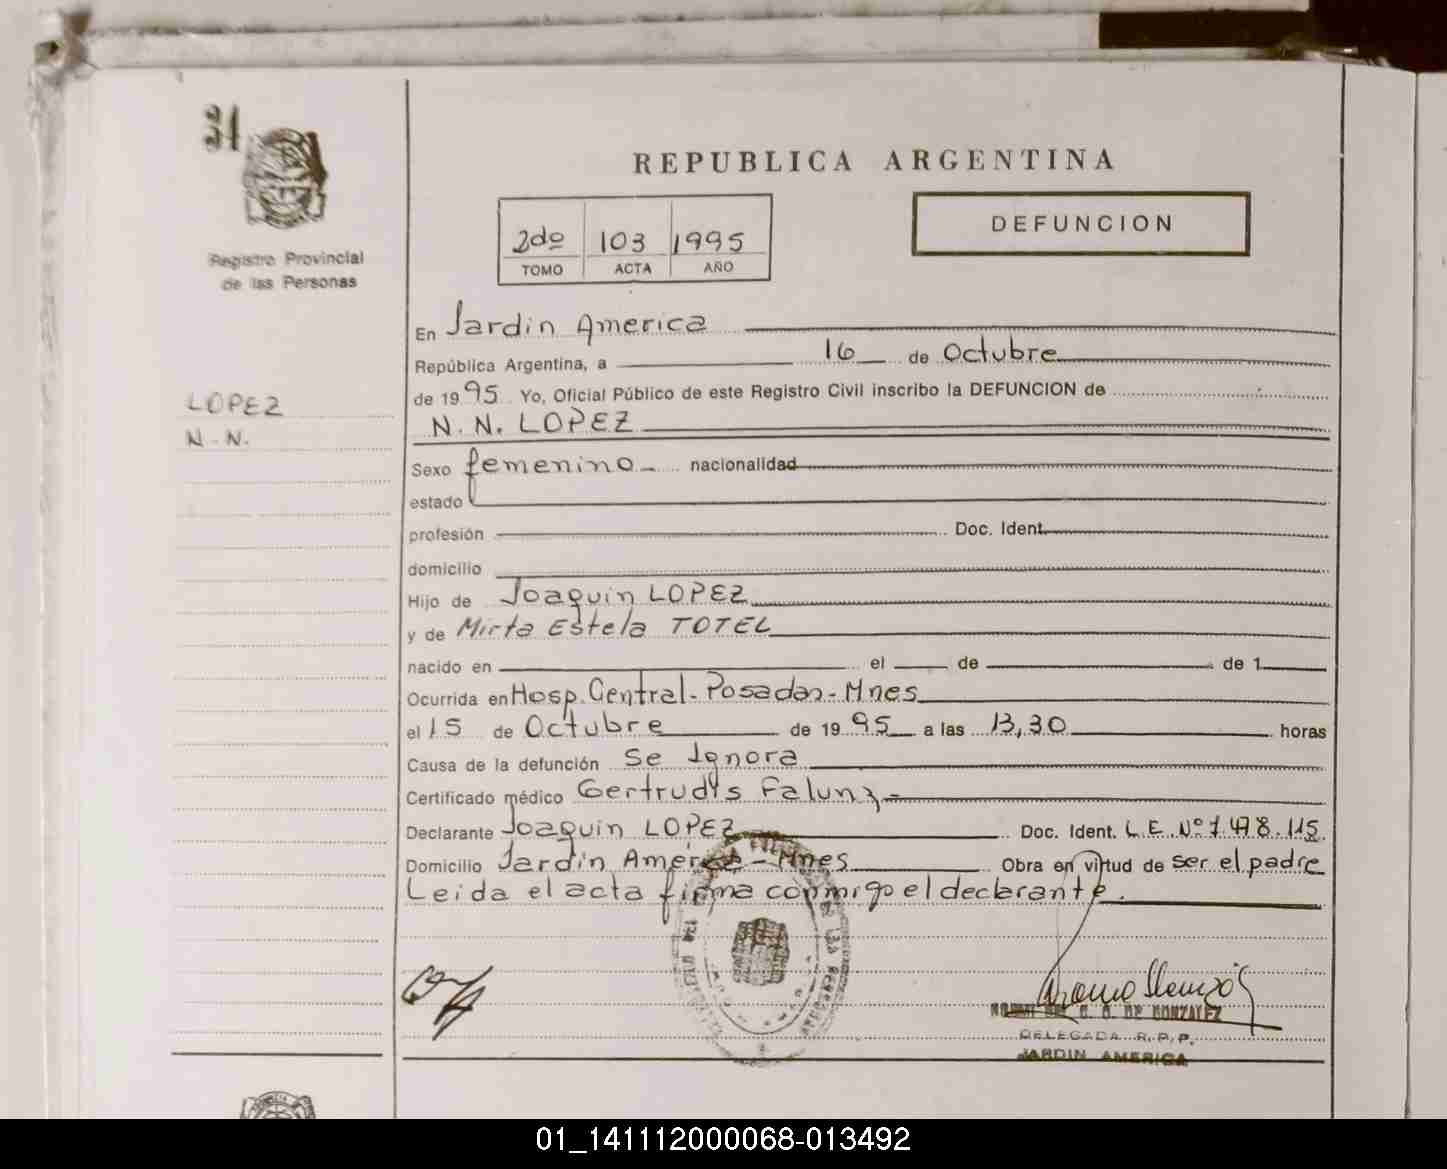 21
REPUBLICA ARGENTINA
2do 103 1995
TOMO ACTA AÑO
DEFUNCION
Registro Provincial
de las Personas
LOPEZ
N.N.
En Jardin America
República Argentina, a 16 de Octubre
de 1995 Yo, Oficial Público de este Registro Civil inscribo la DEFUNCION de
N.N. LOPEZ
Sexo femenino nacionalidad
estado
profesión Doc. Ident.
domicilio
Hijo de Joaquin LOPEZ
y de Mirta Estela TOTEL
nacido en el de de 1
Ocurrida en Hosp. Central-Posadas-Mnes
el 15 de Octubre de 1995 a las 13,30 horas
Causa de la defunción Se Ignora
Certificado médico Gertrudis
Declarante Joaquin LOPEZ Doc. Ident. L.E. Nº 7.478.115
Domicilio Jardin America - Mnes Obra en virtud de ser el padre
Leida el acta firma conmigo el declarante.
DE GONZALEZ
DELEGADA R.P.P.
JARDIN AMERICA
01_141112000068-013492